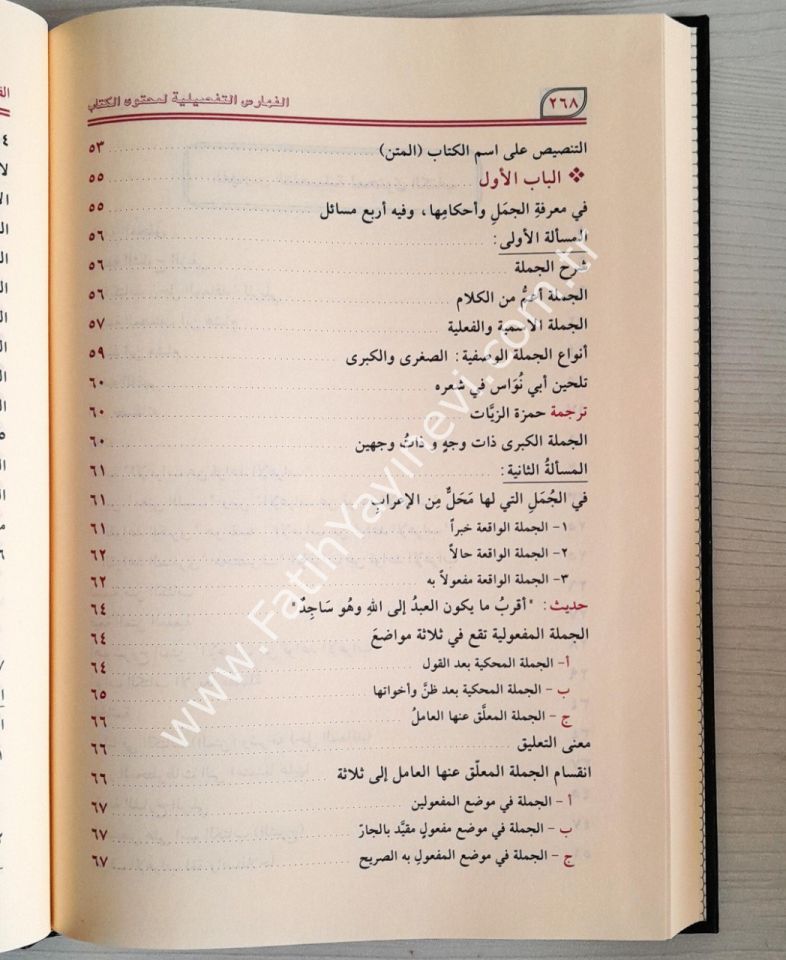 ٢٦٨ الفهارس التفصيلية لمحتوى الكتاب
التنصيص على اسم الكتاب (المتن) ٥٣
❖ الباب الأول ٥٥
في معرفةِ الجمَلِ وأحكامِها، وفيه أربع مسائل ٥٥
المسألة الأولى: ٥٦
شرح الجملة ٥٦
الجملة أعمُّ من الكلام ٥٦
الجملة الاسمية والفعلية ٥٧
أنواع الجملة الوصفية: الصغرى والكبرى ٥٩
تلحين أبي نُوَاس في شعره ٦٠
ترجمة حمزة الزيَّات ٦٠
الجملة الكبرى ذات وجهٍ وذاتُ وجهين ٦٠
المسألةُ الثانية: ٦١
في الجُمَلِ التي لها مَحَلٌّ مِن الإعراب ٦١
١- الجملة الواقعة خبراً ٦١
٢- الجملة الواقعة حالاً ٦٢
٣- الجملة الواقعة مفعولاً به ٦٢
حديث: "أقربُ ما يكون العبدُ إلى اللهِ وهُو سَاجِدٌ" ٦٤
الجملة المفعولية تقع في ثلاثة مواضعَ ٦٤
أ- الجملة المحكية بعد القول ٦٤
ب- الجملة المحكية بعد ظنَّ وأخواتها ٦٥
ج- الجملة المعلَّق عنها العاملُ ٦٦
معنى التعليق ٦٦
انقسام الجملة المعلّق عنها العامل إلى ثلاثة ٦٦
أ- الجملة في موضع المفعولين ٦٧
ب- الجملة في موضع مفعولٍ مقيَّد بالجارّ ٦٧
ج- الجملة في موضع المفعولِ به الصريح ٦٧
www.FatihYayinevi.com.tr